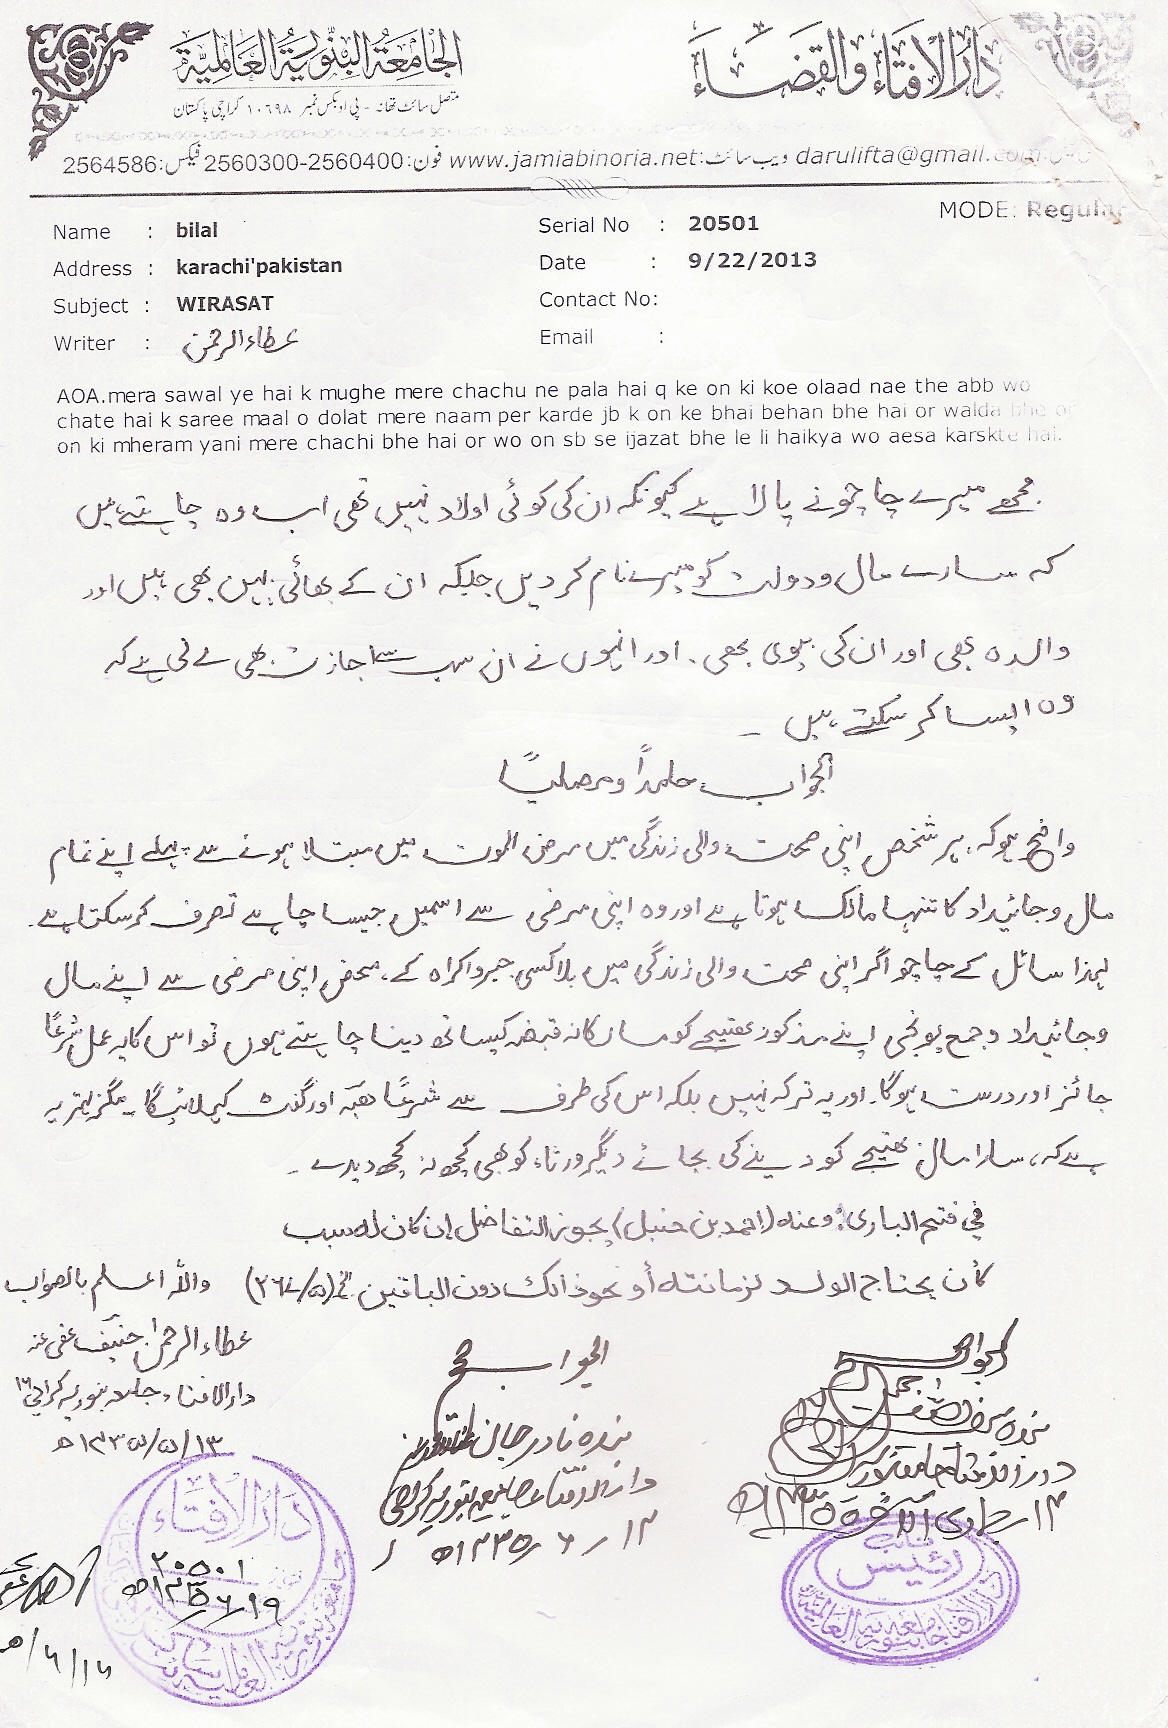 دارالافتاء والقضاء
الجامعة البنورية العالمية
متصل سائٹ تھانہ - پی او بکس نمبر ۱۰۶۹۸ کراچی پاکستان
darulifta@gmail.com ویب سائٹ: www.jamiabinoria.net فون: 2560300-2560400 فیکس: 2564586
MODE: Regular
Name : bilal
Serial No : 20501
Address : karachi'pakistan
Date : 9/22/2013
Subject : WIRASAT
Contact No:
Writer : عطاء الرحمن
Email :
AOA.mera sawal ye hai k mughe mere chachu ne pala hai q ke on ki koe olaad nae the abb wo
chate hai k saree maal o dolat mere naam per karde jb k on ke bhai behan bhe hai or walda bhe or
on ki mheram yani mere chachi bhe hai or wo on sb se ijazat bhe le li haikya wo aesa karskte hai.
مجھے میرے چاچو نے پالا ہے کیونکہ ان کی کوئی اولاد نہیں تھی اب وہ چاہتے ہیں
کہ سارے مال و دولت کو میرے نام کردیں جبکہ ان کے بھائی بہن بھی ہیں اور
والدہ بھی اور ان کی بیوی بھی۔ اور انہوں نے ان سب سے اجازت بھی لے لی ہے کہ
وہ ایسا کر سکتے ہیں ۔
الجواب حامداً ومصلیاً
واضح ہو کہ ہر شخص اپنی صحت والی زندگی میں مرض الموت میں مبتلا ہونے سے پہلے اپنے تمام
مال و جائیداد کا تنہا مالک ہوتا ہے اور وہ اپنی مرضی سے اسمیں جیسا چاہے تصرف کرسکتا ہے۔
لہذا سائل کے چاچو اگر اپنی صحت والی زندگی میں بلا کسی جبر و اکراہ کے، محض اپنی مرضی سے اپنے مال
و جائیداد و جمع پونجی اپنے مذکور بھتیجے کو مالکانہ قبضہ کیساتھ دینا چاہتے ہوں تو اس کا یہ عمل شرعاً
جائز اور درست ہوگا۔ اور یہ ترکہ نہیں بلکہ اس کی طرف سے شرعاً ھبہ اور گفٹ کہلائیگا۔ مگر بہتر یہ
ہے کہ، سارا مال بھتیجے کو دینے کی بجائے دیگر ورثاء کو بھی کچھ نہ کچھ دیدے ۔
في فتح الباری: وعنه (احمد بن حنبل) يجوز التفاضل إن كان له سبب
كأن يحتاج الولد لزمانته أو نحو ذالك دون الباقين الخ (۵/۲۶۴) واللہ اعلم بالصواب
عطاء الرحمن حنیف عفی عنہ
دارالافتاء جامعہ بنوریہ کراچی ۱۶
۱۳/۵/۱۴۳۵ھ
الجواب صحیح
بندہ نادر جان
دارالافتاء جامعہ بنوریہ کراچی
۱۳/۶/۱۴۳۵ھ
الجواب صحیح
بندہ
دارالافتاء جامعہ بنوریہ
۱۳ جمادی الآخرۃ ۱۴۳۵ھ
دارالافتاء
۲۰۵۰۱
۱۹/۶/۱۴۳۵ھ
نائب
رئیس
دارالافتاء جامعہ بنوریہ العالمیہ